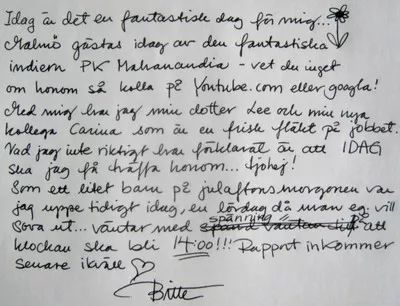 Idag är det en fantastisk dag för mig...
Malmö gästas idag av den fantastiska
indiern PK Mahanandia - vet du inget
om honom så kolla på Youtube.com eller googla!
Med mig har jag min dotter Lee och min nya
kollega Carina som är en frisk fläkt på jobbet.
Vad jag inte riktigt har förklarat är att IDAG
ska jag få träffa honom... tjohej!
Som ett litet barn på julaftonsmorgonen var
jag uppe tidigt idag, en lördag då man eg. vill
sova ut... väntar med spänning att
klockan ska bli 14:00!!! Rapport inkommer
senare ikväll
Bitte